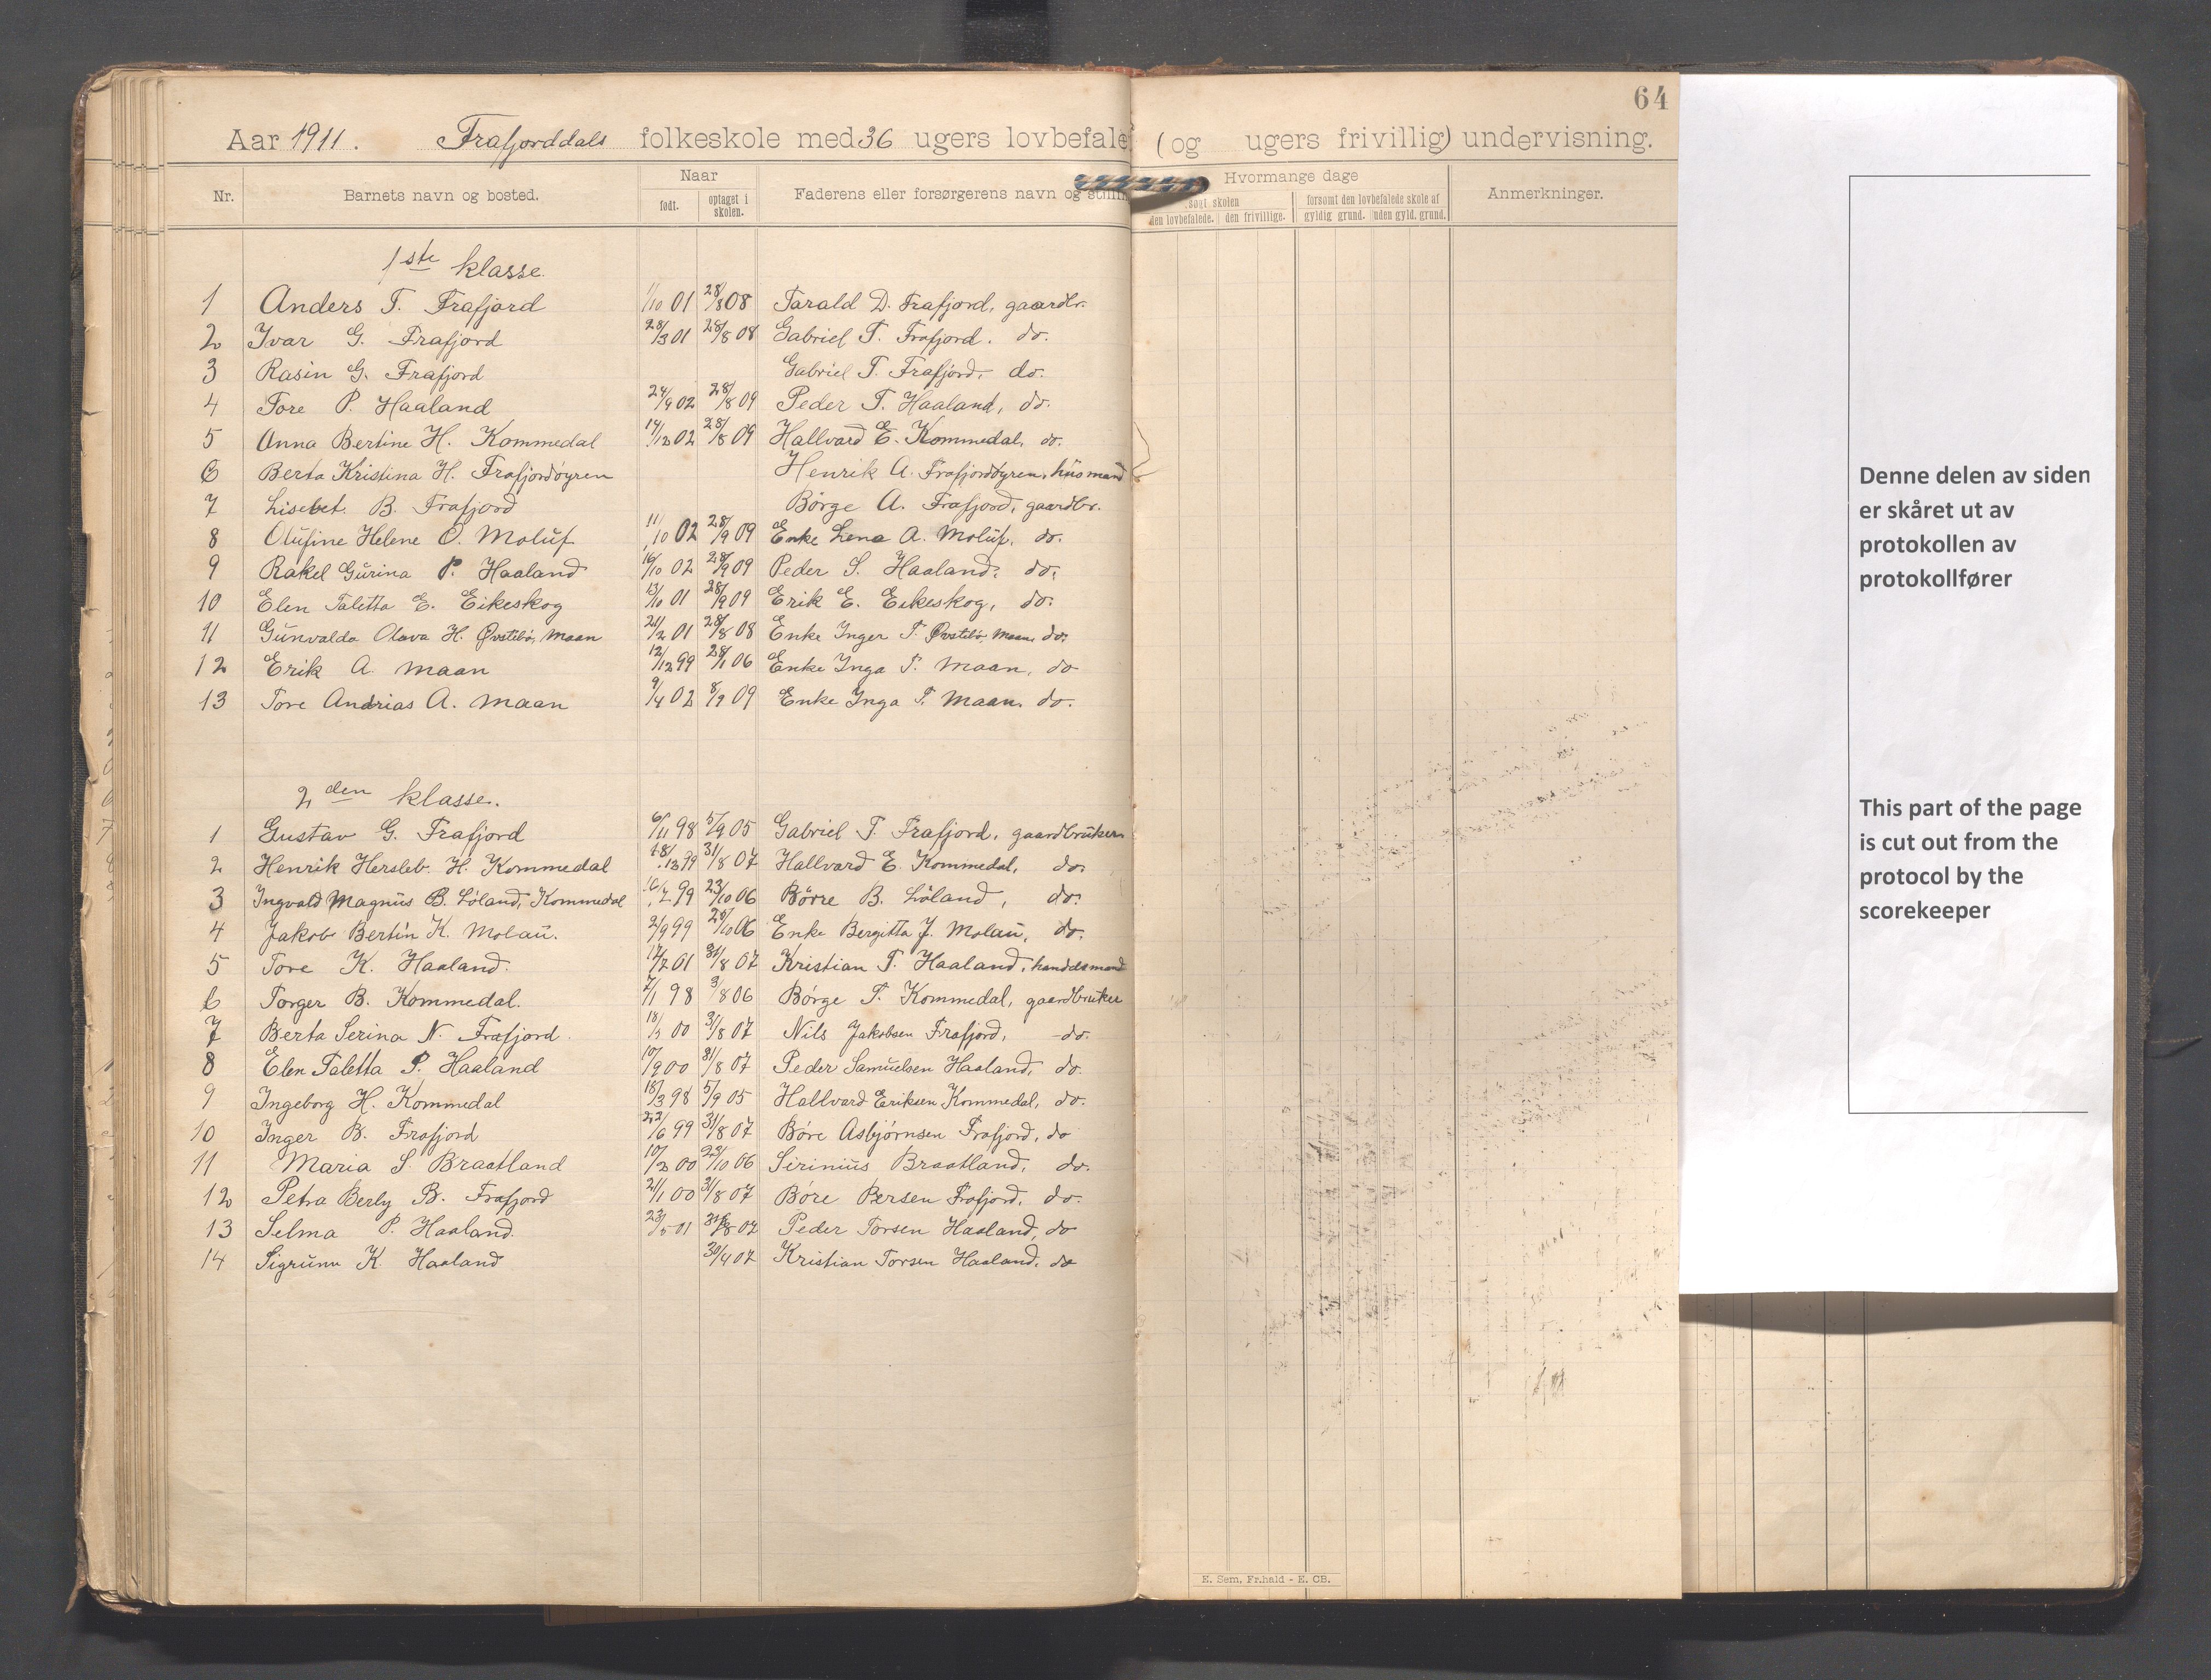 64
Aar 1911. Frafjorddals folkeskole med 36 ugers lovbefale (og ugers frivillig) undervisning.
Nr. Barnets navn og bosted. Naar født. optaget i skolen. Faderens eller forsørgerens navn og stillin Hvormange dage søgt skolen den lovbefalede. den frivillige. forsømt den lovbefalede skole af gyldig grund. uden gyld. grund. Anmerkninger.
1ste klasse.
1 Anders T. Frafjord 1/10 01 28/8 08 Tarald D. Frafjord, gaardbr.
2 Ivar G. Frafjord 28/3 01 28/8 08 Gabriel T. Frafjord. do.
3 Rasin G. Frafjord Gabriel T. Frafjord, do.
4 Tore P. Haaland 24/9 02 28/8 09 Peder T. Haaland, do.
5 Anna Bertine H. Kommedal 14/12 02 28/8 09 Hallvard E. Kommedal, do.
6 Berta Kristina H. Frafjordøyren Henrik A. Frafjordøyren, husmand
7 Lisebet. B. Frafjord Börge A. Frafjord, gaardbr.
8 Olufine Helene O. Moluf 11/10 02 28/9 09 Enke Lena A. Moluf, do.
9 Rakel Gurina P. Haaland 16/10 02 28/9 09 Peder S. Haaland, do.
10 Elen Taletta E. Eikeskog 13/10 01 28/9 09 Erik E. Eikeskog, do.
11 Gunvalda Olava H. Øvstebø, Maan 21/2 01 28/8 08 Enke Inger T. Øvstebø, Maan, do.
12 Erik A. Maan 12/12 99 28/1 06 Enke Inga T. Maan, do
13 Tore Andrias A. Maan 9/4 02 8/9 09 Enke Inga T. Maan, do.
2den klasse.
1 Gustav G. Frafjord 6/11 98 5/9 05 Gabriel T. Frafjord, gaardbruker
2 Henrik Hersleb. H. Kommedal 18/12 99 31/8 07 Hallvard E. Kommedal, do.
3 Ingvald Magnus B. Löland, Kommedal 99 23/10 06 Börre B. Löland, do.
4 Jakob Bertin K. Molau. 2/9 99 /10 06 Enke Bergitta J. Molau, do.
5 Tore K. Haaland. 01 31/8 07 Kristian T. Haaland, handelsmand
6 Torger B. Kommedal. 7/1 98 3/8 06 Börge T. Kommedal, gaardbruker
7 Berta Serina N. Frafjord. 00 31/8 07 Nils Jakobsen Frafjord, do.
8 Elen Taletta P. Haaland 10/9 00 31/8 07 Peder Samuelsen Haaland, do.
9 Ingeborg H. Kommedal 18/3 98 5/9 05 Hallvard Eriksen Kommedal, do.
10 Inger B. Frafjord 22/6 99 31/8 07 Böre Asbjörnsen Frafjord, do
11 Maria S. Braatland 10/3 00 23/10 06 Sirinius Braatland, do.
12 Petra Berly B. Frafjord 21/1 00 31/8 07 Böre Persen Frafjord, do.
13 Selma P. Haaland. 23/5 01 07 Peder Torsen Haaland, do
14 Sigrunn K. Haaland 30/4 07 Kristian Torsen Haaland, do
E. Sem, Fr.hald - E. CB.
Denne delen av siden
er skåret ut av
protokollen av
protokollfører
This part of the page
is cut out from the
protocol by the
scorekeeper